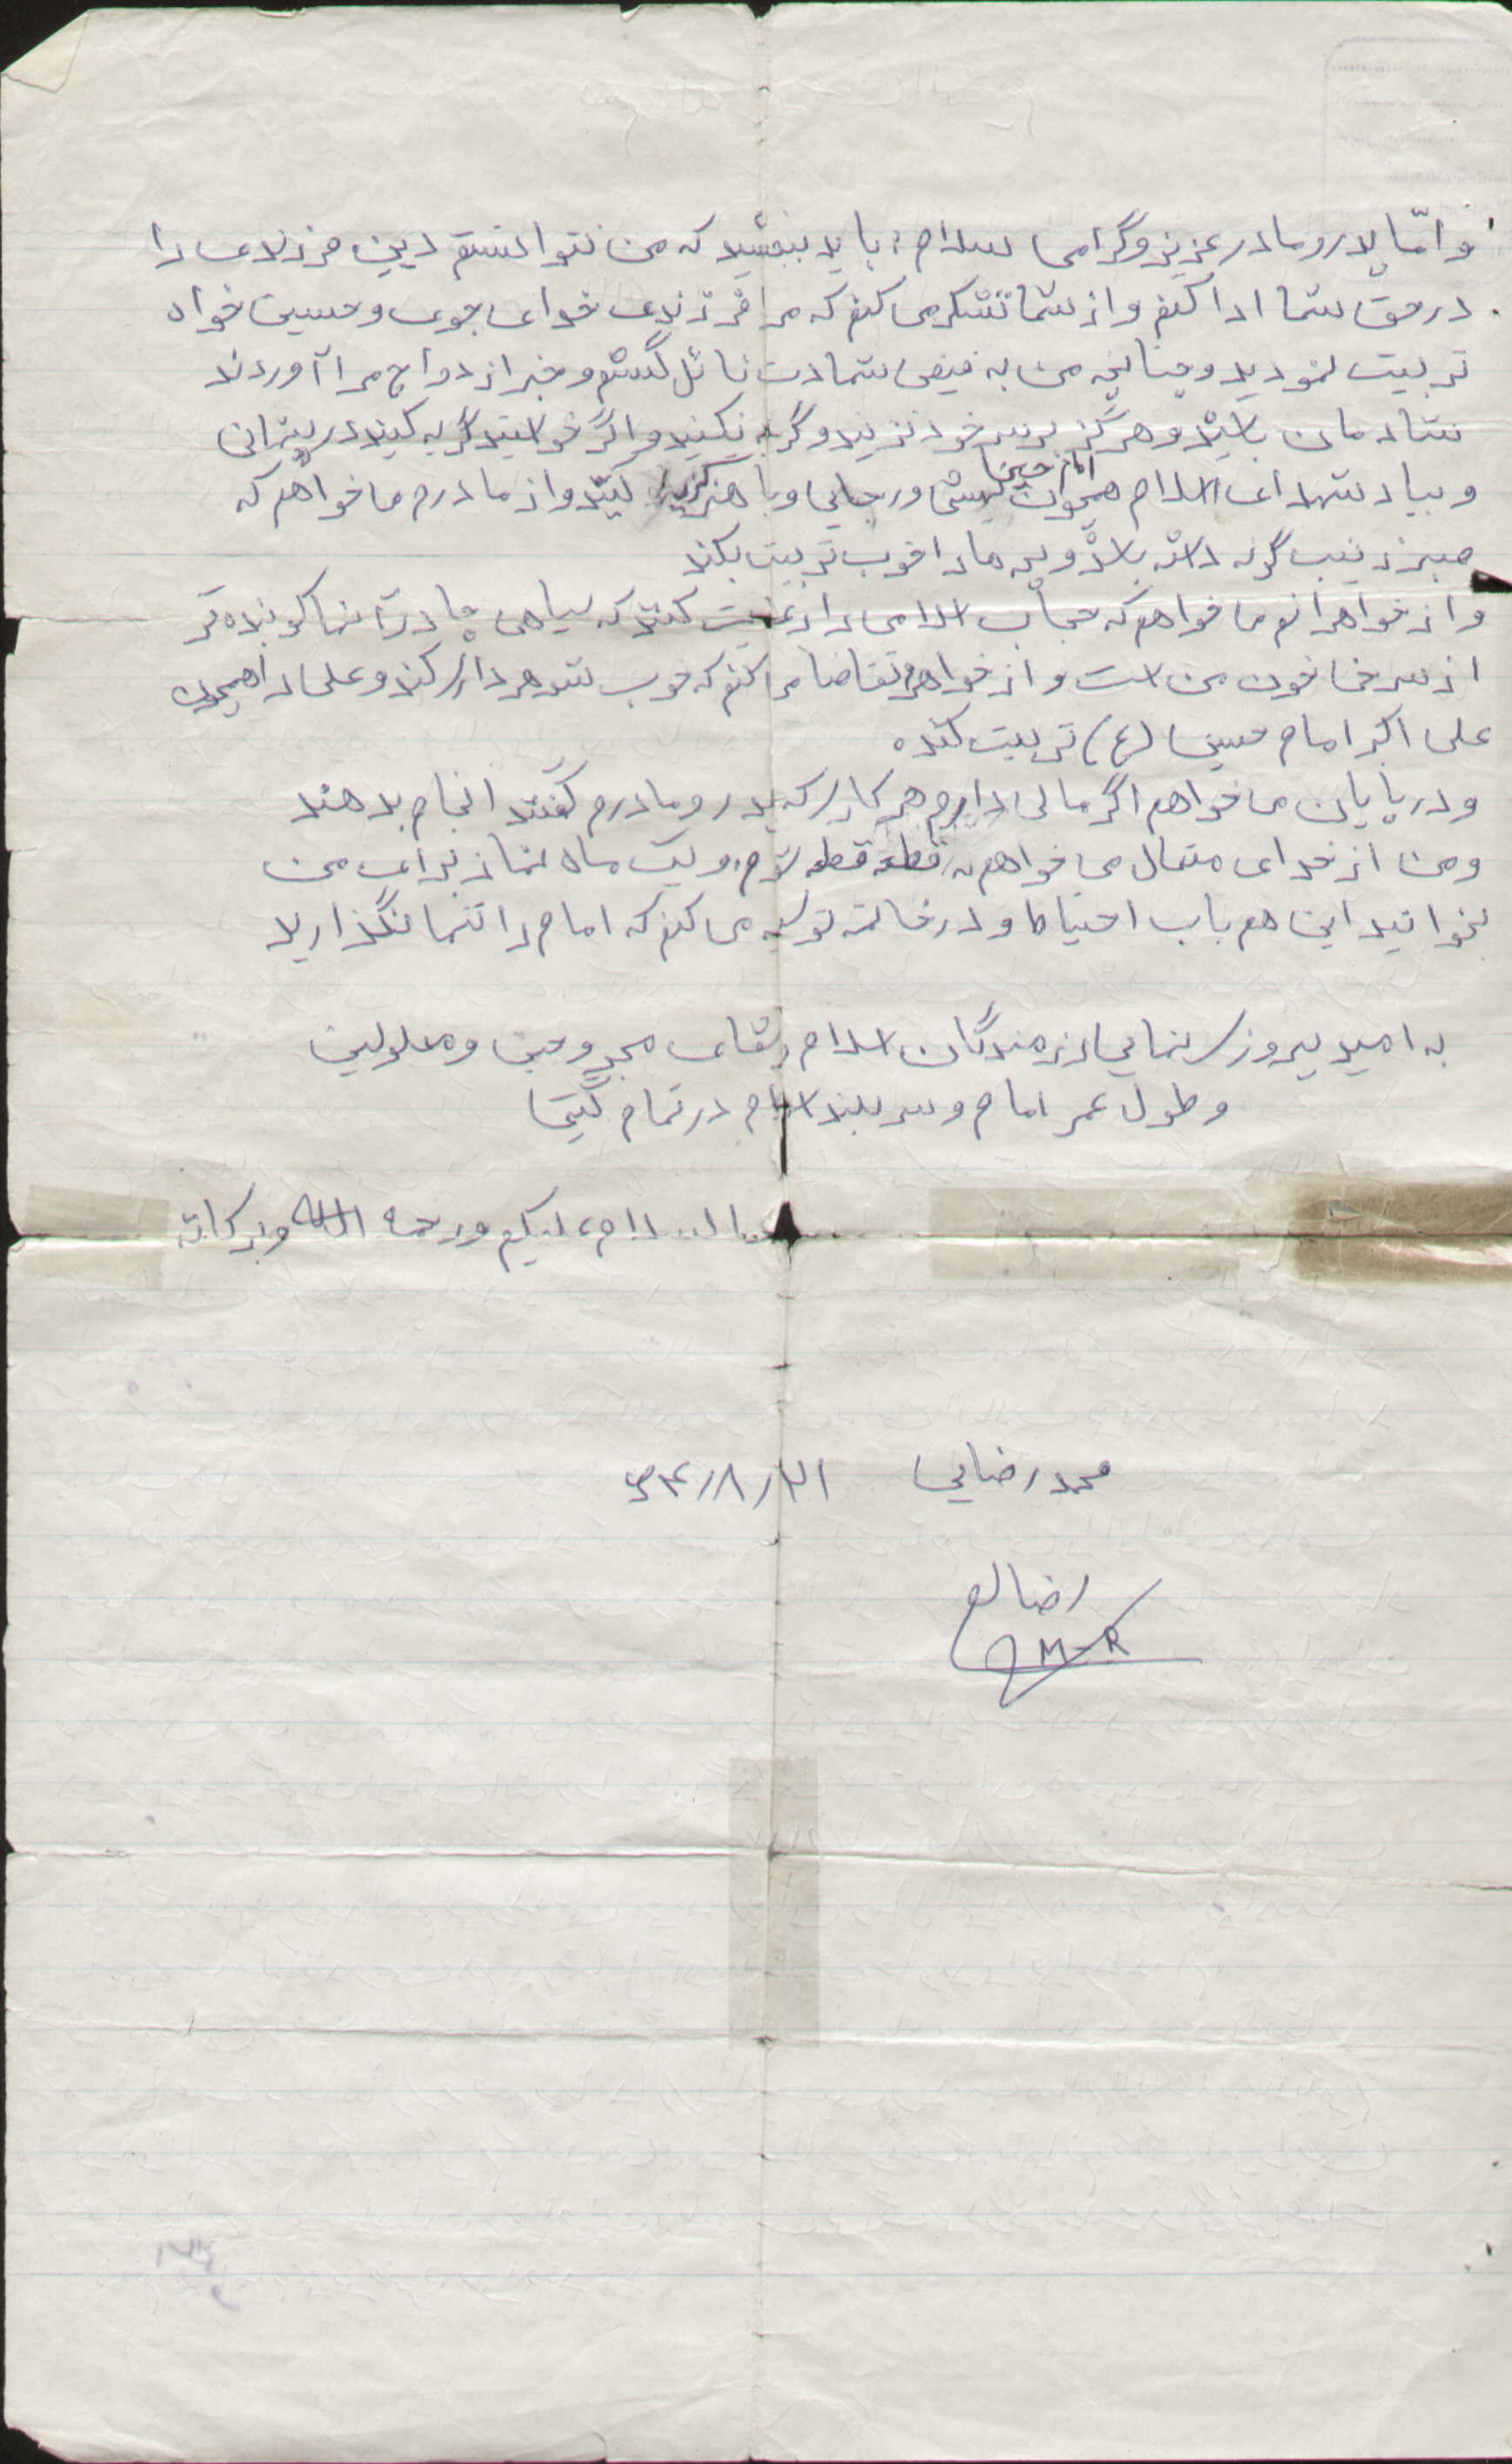 و امّا پدر و مادر عزیز و گرامی سلام: باید ببخشید که من نتوانستم دین فرزندی را
در حق شما ادا کنم و از شما تشکر می کنم که مرا فرزندی خدای جوی و حسین خواه
تربیت نمودید و چنانچه من به فیض شهادت نائل گشتم و خبر ازدواج مرا آوردند
شادمان باشید و هرگز بر سر خود نزنید و گریه نکنید و اگر خواستید گریه کنید در پنهانی
و بیاد شهدای اسلام همچون امام حسین بهشتی و رجایی و باهنر گریه کنید و از مادرم می خواهم که
صبر زینب گونه داشته باشد و بچه ها را خوب تربیت بکند
و از خواهرانم می خواهم که حجاب اسلامی را رعایت کنند که سیاهی چادرتان کوبنده تر
از سرخی خون من است و از خواهرم تقاضا می کنم که خوب شوهرداری کند و علی را همچون
علی اکبر امام حسین (ع) تربیت کند.
و در پایان می خواهم اگر مالی دارم هر کاری که پدر و مادرم گفتند انجام بدهند
و من از خدای متعال می خواهم که قطعه قطعه شوم. و یک ماه نماز برای من
بخوانید این هم باب احتیاط و در خاتمه توصیه می کنم که امام را تنها نگذارید
به امید پیروزی نهایی رزمندگان اسلام و شفای مجروحین و معلولین
و طول عمر امام و سربلندی اسلام در تمام گیتی
والسلام علیکم و رحمة الله و برکاته
محمد رضایی ۶۴/۸/۲۱
رضایی
M-R